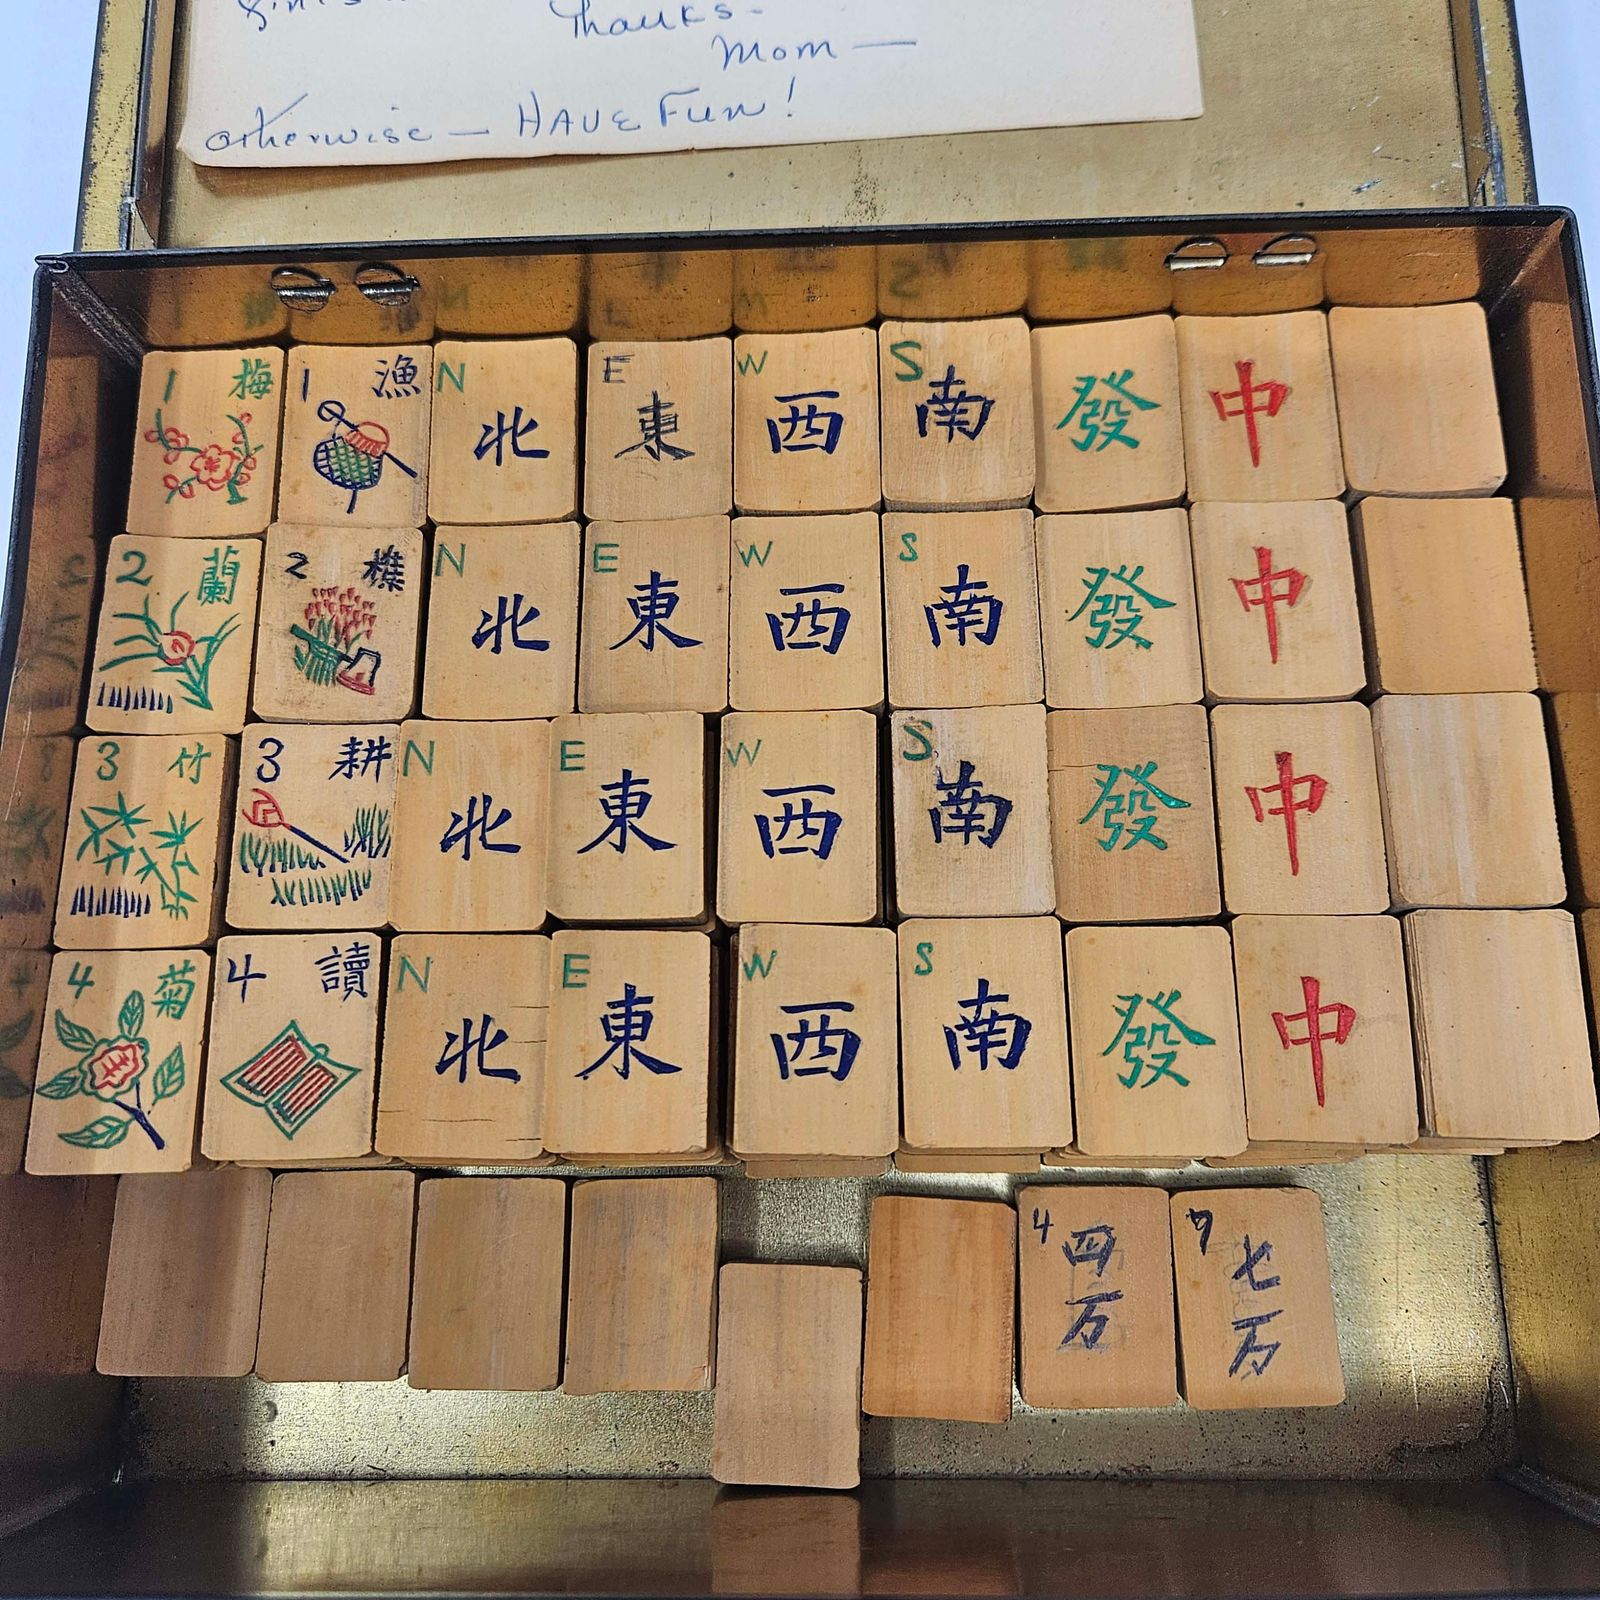 Thanks-
Mom —
otherwise — HAVE Fun!
1 梅 1 漁 N 北 E 東 W 西 S 南 發 中
2 蘭 2 樵 N 北 E 東 W 西 S 南 發 中
3 竹 3 耕 N 北 E 東 W 西 S 南 發 中
4 菊 4 讀 N 北 E 東 W 西 S 南 發 中
4 四万 7 七万